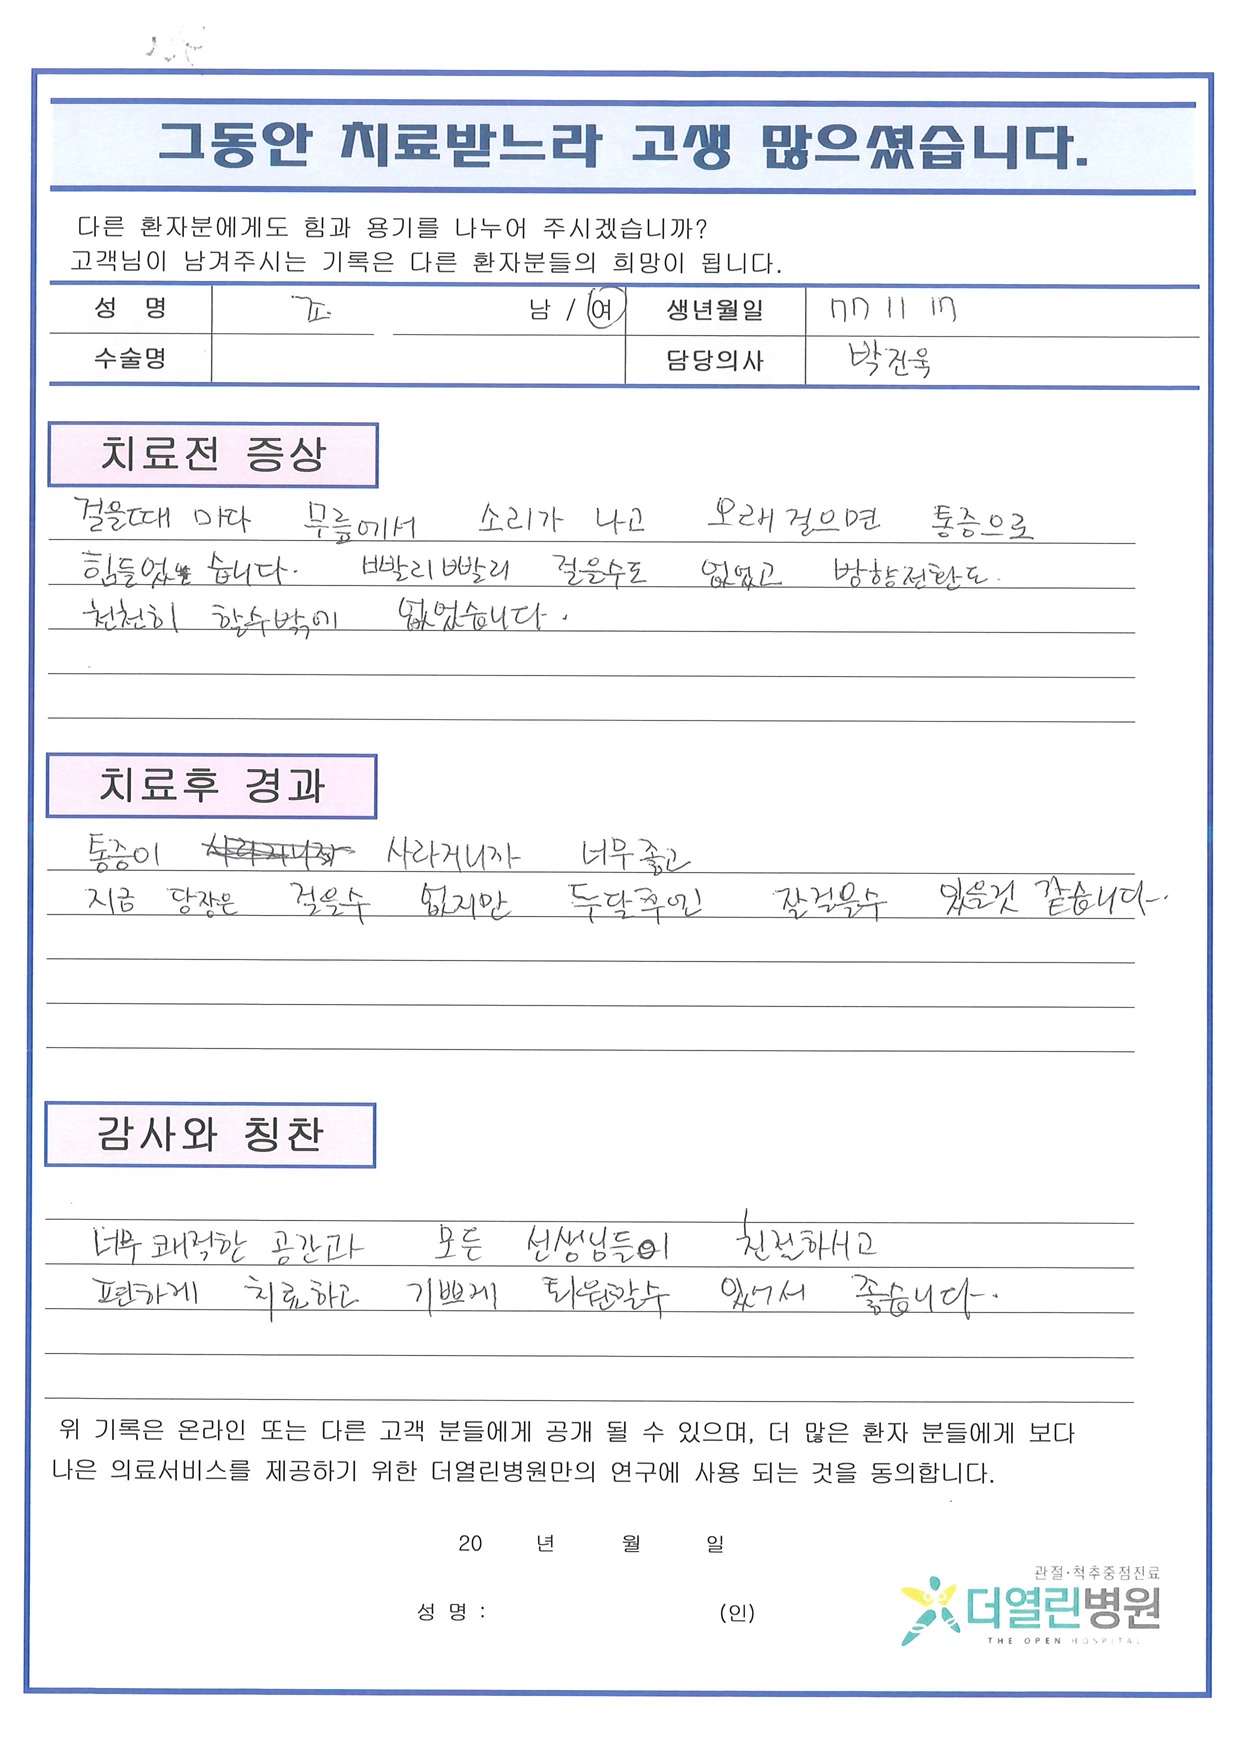 그동안 치료받느라 고생 많으셨습니다.
다른 환자분에게도 힘과 용기를 나누어 주시겠습니까?
고객님이 남겨주시는 기록은 다른 환자분들의 희망이 됩니다.
성 명 남 / 여 생년월일 77 11 17
수술명 담당의사 박진욱
치료전 증상
걸을때 마다 무릎에서 소리가 나고 오래걸으면 통증으로
힘들었 습니다. 빠빨리빠빨리 걸을수도 없었고 방향전환도
천천히 할수밖에 없었습니다.
치료후 경과
통증이 사라지니까 사라거니까 너무좋고
지금 당장은 걸을수 없지만 두달후엔 잘걸을수 있을것 같습니다.
감사와 칭찬
너무쾌적한 공간과 모든 선생님들이 친절하시고
편하게 치료하고 기쁘게 퇴원할수 있어서 좋습니다.
위 기록은 온라인 또는 다른 고객 분들에게 공개 될 수 있으며, 더 많은 환자 분들에게 보다
나은 의료서비스를 제공하기 위한 더열린병원만의 연구에 사용 되는 것을 동의합니다.
20 년 월 일
성 명 : (인)
관절·척추중점진료
더열린병원
THE OPEN HOSPITAL